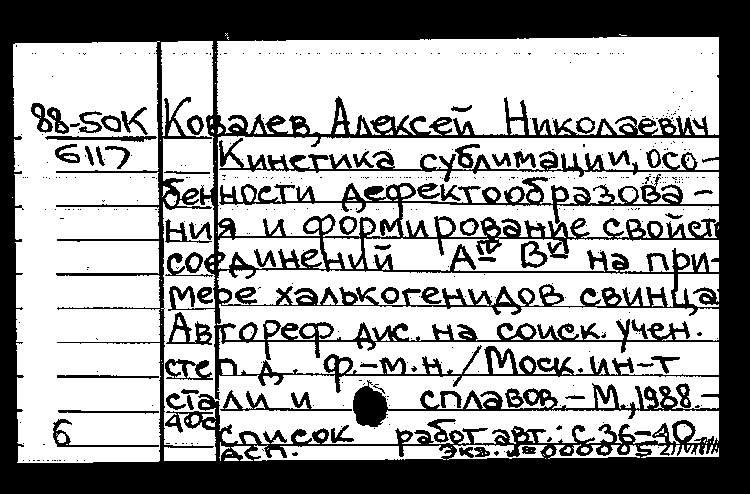 88-50К Ковалев, Алексей Николаевич
6117 Кинетика сублимации, осо-
бенности дефектообразова-
ния и формирование свойств
соединений Aᴵⱽ Bⱽᴵ на при-
мере халькогенидов свинца
Автореф. дис. на соиск. учен.
степ. д. ф.-м.н. / Моск. ин-т
стали и сплавов. - М., 1988. -
40с
6 Список работ авт.: с. 36-40
дсп. Экз. № 000005